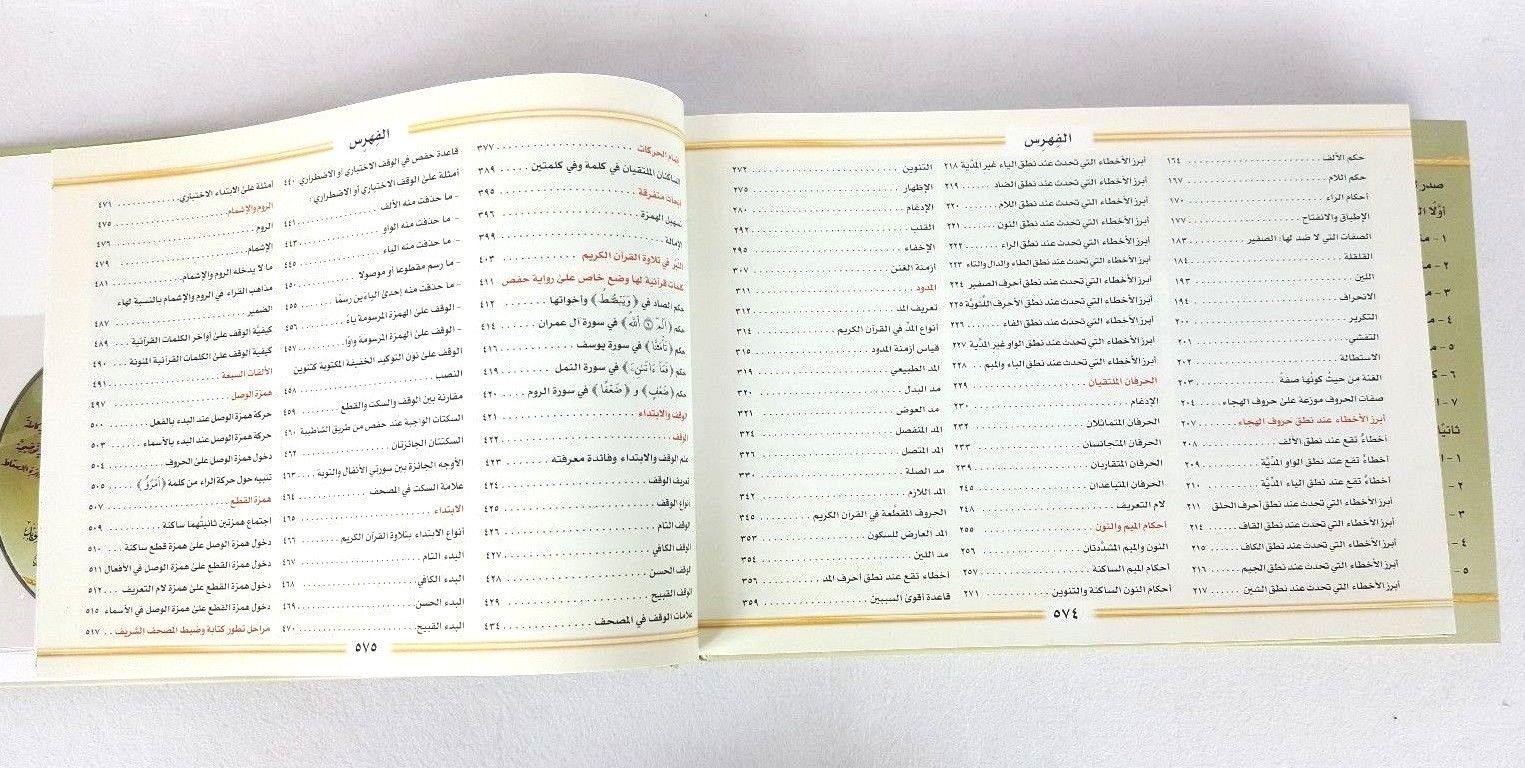 الفِهرِس
حكم الألف ١٦٤
حكم اللام ١٦٧
أحكام الراء ١٧٠
الإطباق والانفتاح ١٧٧
الصفات التي لا ضد لها: الصفير ١٨٣
القلقلة ١٨٤
اللين ١٩٣
الانحراف ١٩٤
التكرير ٢٠٠
التفشي ٢٠١
الاستطالة ٢٠٢
الغنة من حيثُ كونُها صفةً ٢٠٣
صفات الحروف موزعة على حروف الهجاء ٢٠٤
أبرز الأخطاء عند نطق حروف الهجاء ٢٠٧
أخطاءٌ تقع عند نطق الألف ٢٠٨
أخطاءٌ تقع عند نطق الواو المدّيّة ٢٠٩
أخطاءٌ تقع عند نطق الياء المدّيّة ٢١٠
أبرز الأخطاء التي تحدث عند نطق أحرف الحلق ٢١١
أبرز الأخطاء التي تحدث عند نطق القاف ٢١٤
أبرز الأخطاء التي تحدث عند نطق الكاف ٢١٥
أبرز الأخطاء التي تحدث عند نطق الجيم ٢١٦
أبرز الأخطاء التي تحدث عند نطق الشين ٢١٧
أبرز الأخطاء التي تحدث عند نطق الياء غير المدّية ٢١٨
أبرز الأخطاء التي تحدث عند نطق الضاد ٢١٩
أبرز الأخطاء التي تحدث عند نطق اللام ٢٢٠
أبرز الأخطاء التي تحدث عند نطق النون ٢٢١
أبرز الأخطاء التي تحدث عند نطق الراء ٢٢٢
أبرز الأخطاء التي تحدث عند نطق الطاء والدال والتاء ٢٢٣
أبرز الأخطاء التي تحدث عند نطق أحرف الصفير ٢٢٤
أبرز الأخطاء التي تحدث عند نطق الأحرف اللِّثويّة ٢٢٥
أبرز الأخطاء التي تحدث عند نطق الفاء ٢٢٦
أبرز الأخطاء التي تحدث عند نطق الواو غير المدّية ٢٢٧
أبرز الأخطاء التي تحدث عند نطق الباء والميم ٢٢٨
الحرفان الملتقيان ٢٢٩
الإدغام ٢٣٠
الحرفان المتماثلان ٢٣٢
الحرفان المتجانسان ٢٣٣
الحرفان المتقاربان ٢٣٩
الحرفان المتباعدان ٢٤٥
لام التعريف ٢٤٨
أحكام الميم والنون ٢٥٥
النون والميم المشدَّدتان ٢٥٦
أحكام الميم الساكنة ٢٥٧
أحكام النون الساكنة والتنوين ٢٧١
التنوين ٢٧٢
الإظهار ٢٧٥
الإدغام ٢٨٠
القلب ٢٩٢
الإخفاء ٢٩٥
أزمنة الغنن ٣٠٧
المدود ٣١١
تعريف المد ٣١٢
أنواع المدّ في القرآن الكريم ٣١٤
قياس أزمنة المدود ٣١٥
المد الطبيعي ٣١٩
مد البدل ٣٢٠
مد العوض ٣٢١
المد المنفصل ٣٢٤
المد المتصل ٣٢٦
مد الصلة ٣٣٠
المد اللازم ٣٤٢
الحروف المقطّعة في القرآن الكريم ٣٤٥
المد العارض للسكون ٣٥٣
مد اللين ٣٥٤
أخطاء تقع عند نطق أحرف المد ٣٥٦
قاعدة أقوى السببين ٣٥٩
٥٧٤
الفِهرِس
إتمام الحركات ٣٧٧
الساكنان الملتقيان في كلمة وفي كلمتين ٣٨٩
أبحاث متفرقة ٣٩٥
تسهيل الهمزة ٣٩٦
الإمالة ٣٩٩
النَّبْر في تلاوة القرآن الكريم ٤٠٣
كلمات قرآنية لها وضع خاص على رواية حفص ٤١١
حكم الصاد في ﴿وَيَبْصُۜطُ﴾ وأخواتها ٤١٢
حكم ﴿الٓمٓ ۝ ٱللَّهُ﴾ في سورة آل عمران ٤١٤
حكم ﴿تَأْمَ۫نَّا﴾ في سورة يوسف ٤١٦
حكم ﴿فَمَآ ءَاتَىٰنِۦَ﴾ في سورة النمل ٤١٩
حكم ﴿ضَعْفٍ﴾ و ﴿ضَعْفًا﴾ في سورة الروم ٤٢٠
الوقف والابتداء ٤٢١
الوقف ٤٢٢
علم الوقف والابتداء وفائدة معرفته ٤٢٣
تعريف الوقف ٤٢٤
أنواع الوقف ٤٢٥
الوقف التام ٤٢٦
الوقف الكافي ٤٢٧
الوقف الحسن ٤٢٨
الوقف القبيح ٤٢٩
علامات الوقف في المصحف ٤٣٤
قاعدة حفص في الوقف الاختباري أو الاضطراري ٤٤٠
أمثلة على الوقف الاختباري أو الاضطراري:
- ما حذفت منه الألف ٤٤١
- ما حذفت منه الواو ٤٤٣
- ما حذفت منه الياء ٤٤٥
- ما رسم مقطوعا أو موصولا ٤٥٠
- ما حذفت منه إحدى الياءَين رسمًا ٤٥٥
- الوقف على الهمزة المرسومة ياءً ٤٥٦
- الوقف على الهمزة المرسومة واوًا ٤٥٧
الوقف على نون التوكيد الخفيفة المكتوبة كتنوين
النصب ٤٥٨
مقارنة بين الوقف والسكت والقطع ٤٥٩
السكتات الواجبة عند حفص من طريق الشاطبية ٤٦٠
السكتتان الجائزتان ٤٦٢
الأوجه الجائزة بين سورتي الأنفال والتوبة ٤٦٣
علامة السكت في المصحف ٤٦٤
الابتداء ٤٦٥
أنواع الابتداء بتلاوة القرآن الكريم ٤٦٦
البدء التام ٤٦٧
البدء الكافي ٤٦٨
البدء الحسن ٤٦٩
البدء القبيح ٤٧٠
أمثلة على الابتداء الاختباري ٤٧١
الروم والإشمام ٤٧٥
الروم ٤٧٦
الإشمام ٤٧٩
ما لا يدخله الروم والإشمام ٤٨١
مذاهب القراء في الروم والإشمام بالنسبة لهاء
الضمير ٤٨٧
كيفيّة الوقف على أواخر الكلمات القرآنية ٤٨٩
كيفية الوقف على الكلمات القرآنية المنونة ٤٩٠
الألفات السبعة ٤٩١
همزة الوصل ٤٩٧
حركة همزة الوصل عند البدء بالفعل ٥٠٠
حركة همزة الوصل عند البدء بالأسماء ٥٠٣
دخول همزة الوصل على الحروف ٥٠٤
تنبيه حول حركة الراء من كلمة ﴿ٱمْرُؤٌا﴾ ٥٠٥
همزة القطع ٥٠٧
اجتماع همزتين ثانيتُهما ساكنة ٥٠٩
دخول همزة الوصل على همزة قطع ساكنة ٥١٠
دخول همزة القطع على همزة الوصل في الأفعال ٥١١
دخول همزة القطع على همزة لام التعريف ٥١٢
دخول همزة القطع على همزة الوصل في الأسماء ٥١٥
مراحل تطور كتابة وضبط المصحف الشريف ٥١٧
٥٧٥